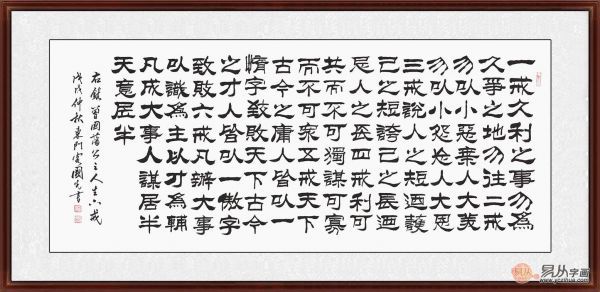 一戒久利之事勿為
久爭之地勿往二戒
勿以小惡棄人大美
勿以小怨忘人大恩
三戒說人之短迺護
己之短誇己之長迺
忌人之長四戒利可
共而不可獨謀可寡
而不可眾五戒天下
古今之庸人皆以一
惰字致敗天下古今
之才人皆以一傲字
致敗六戒凡辦大事
以識為主以才為輔
凡成大事人謀居半
天意居半
右錄曾國藩公之人生六戒
戊戌仲秋東阿國光書
易从字画
www.yczihua.com